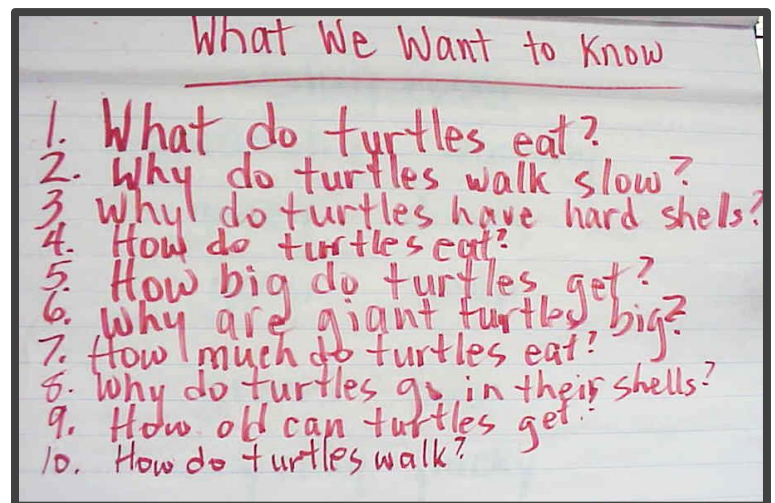 What We Want to Know
1. What do turtles eat?
2. Why do turtles walk slow?
3. Why do turtles have hard shells?
4. How do turtles eat?
5. How big do turtles get?
6. Why are giant turtles big?
7. How much do turtles eat?
8. Why do turtles go in their shells?
9. How old can turtles get?
10. How do turtles walk?